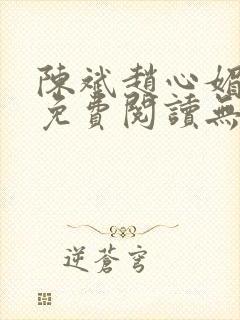 陳斌趙心媚
免費閱讀無
逆蒼穹